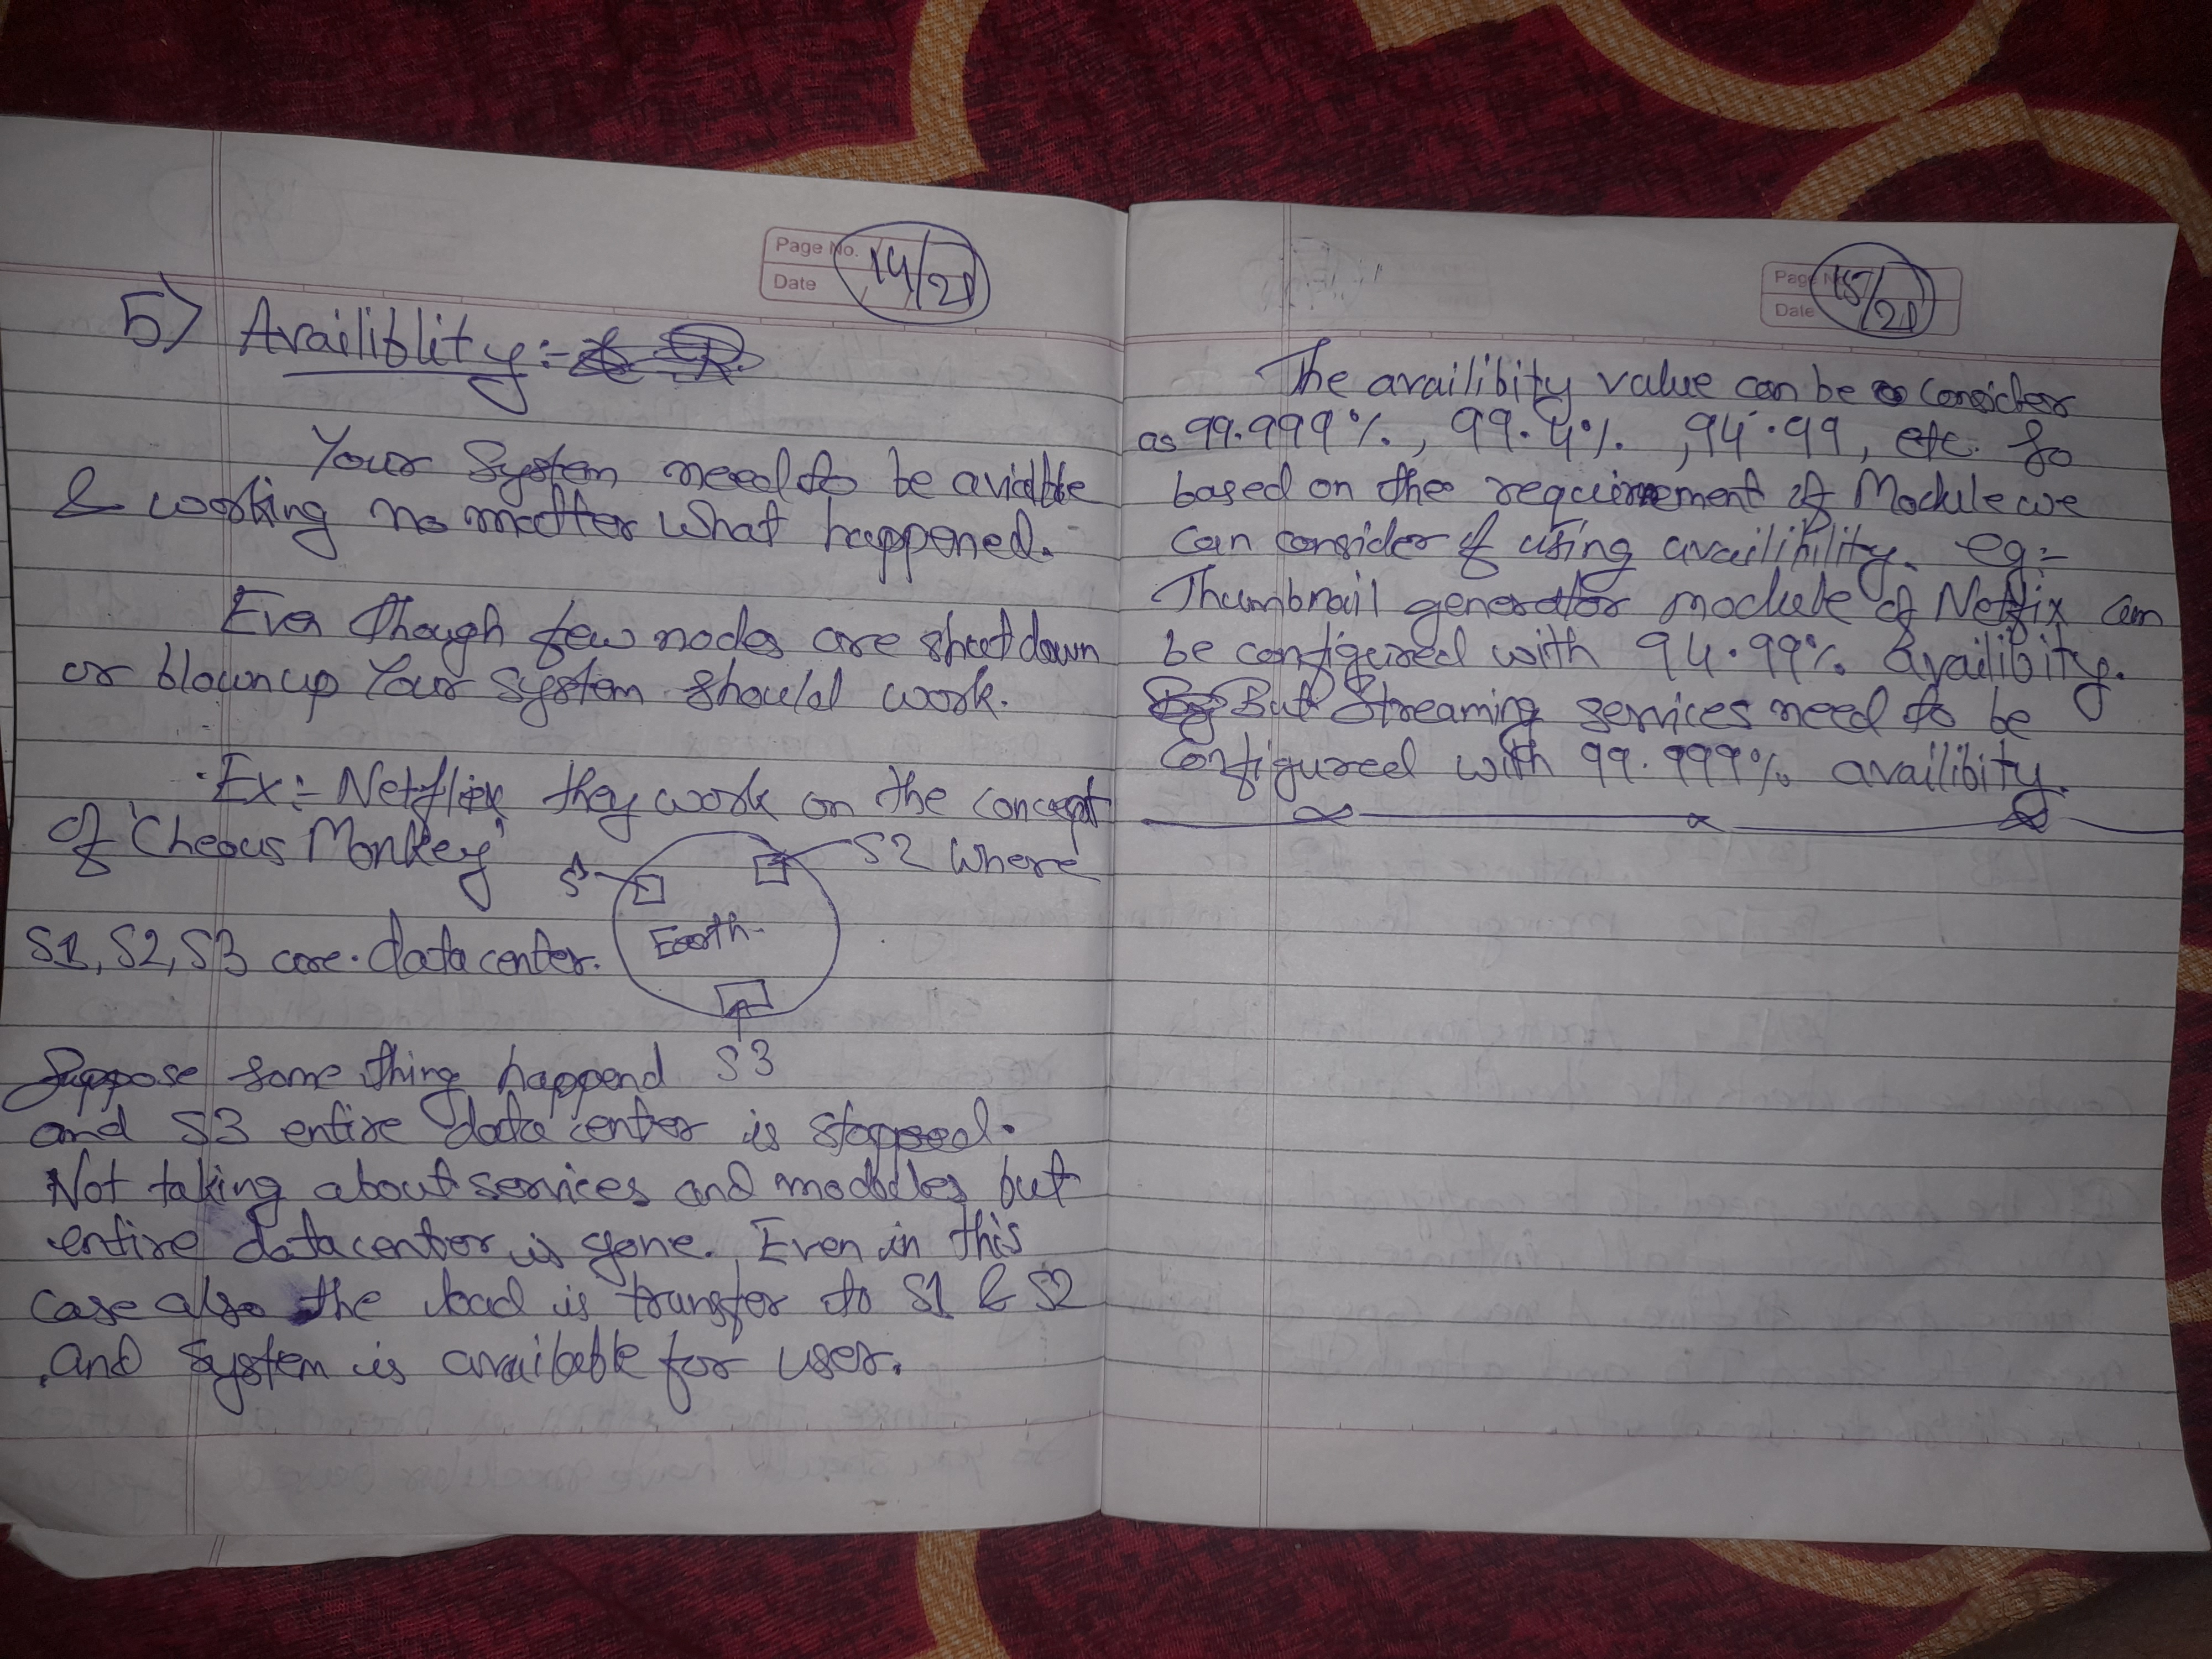 Page No. 14/21
Date
5) Availiblity:-
Your System need to be avialble
& working no matter what happened.
Even though few nodes are shut down
or blown up Your system should work.
Ex:- Netflix they work on the concept
of "Cheous Monkey" S1 S2 where
S1, S2, S3 are data center. Earth
S3
Suppose some thing happend
and S3 entire data center is stopped.
Not taking about services and modules but
entire data center is gone. Even in this
case also the load is transfer to S1 & S2
and system is available for user.
Page No. 15/21
Date
The availibity value can be consider
as 99.999%, 99.4%, 94.99, etc. So
based on the requirement of Module we
can consider if using availibility. eg:-
Thumbnail generator module of Netflix can
be configured with 94.99% Availibity.
But Streaming services need to be
configured with 99.999% availibity.